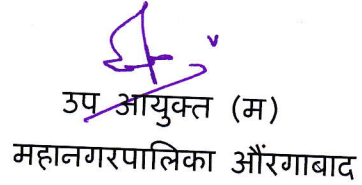 उप आयुक्त (म)
महानगरपालिका औंरगाबाद